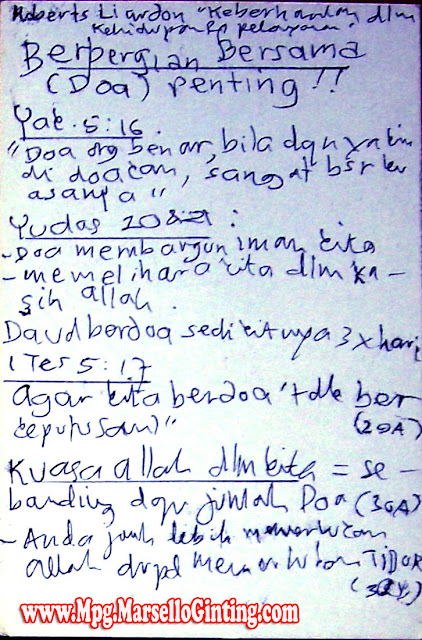 Roberts Liardon "Keberhasilan dlm
Kehidupan & pelayanan"
Berpergian Bersama
(Doa) Penting !!
Yak. 5:16.
"Doa org benar, bila dgn yakin
di doacan, sangat bsr ku
asanya",
Yudas 20 & 21 :
- Doa membangun iman kita
- memelihara kita dlm ka-
sih allah.
Daud berdoa sedikitnya 3x hari
1 Tes 5:17
agar kita berdoa 'tdk ber
keputusan)"
(29A)
Kuasa allah dlm kita = se-
banding dgn jumlah Doa (30A)
- Anda jauh lebih memerlukan
allah drpd memerlukan TIDUR
www.Mpg.MarselloGinting.com